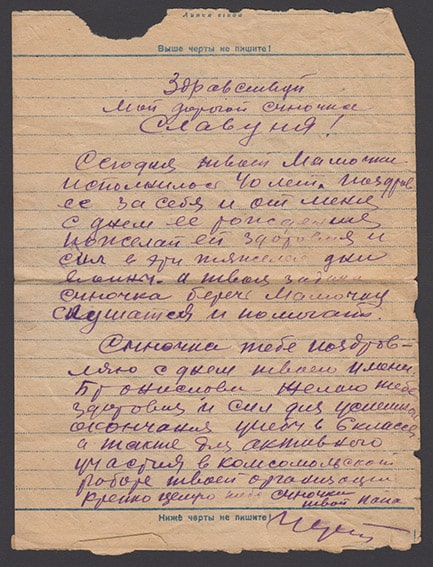 Линия сгиба
Выше черты не пишите!
Здравствуй
мой дорогой синочка
Славуня!
Сегодня твоей Мамочки
исполнилось 40 лет. Поздрав
ее за себя и от меня
с днем ее рождения
пожелай ей здоровия и
сил в эти тяжелые дни
войни. а твоя задача
синочка береч Мамочку
слушатся и помогать.
Синочка тебе поздров-
ляю с днем твоего имени
Бронислови. Желаю тебе
здоровия и сил для успешно
окончания учебы в 6 классе
а также для активного
участия в комсомольской
работе твоей организации
Крепко целую тебе синочки
твой папа
Ниже черты не пишите!